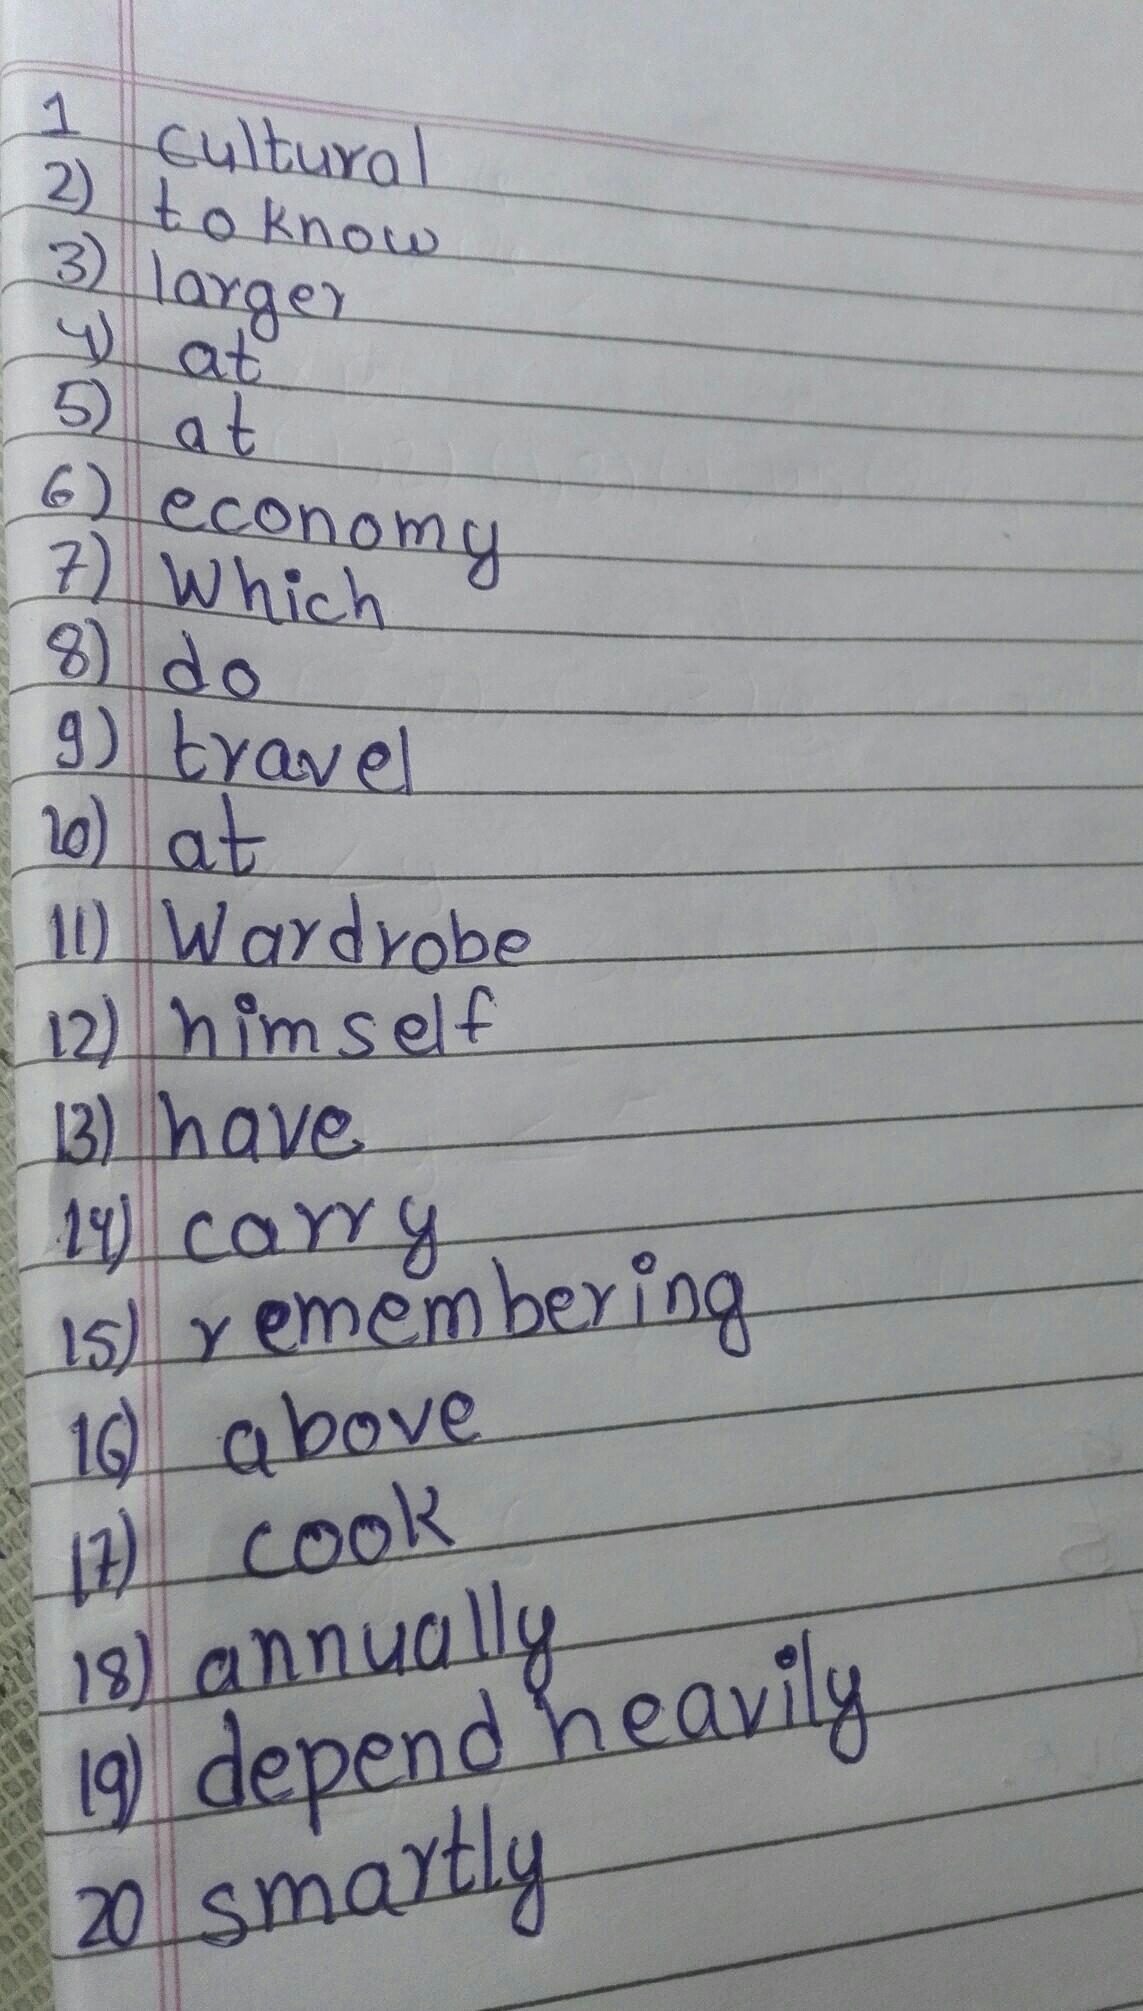 1 cultural
2) to know
3) larger
4) at
5) at
6) economy
7) Which
8) do
9) travel
10) at
11) Wardrobe
12) himself
13) have
14) carry
15) remembering
16) above
17) cook
18) annually
19) depend heavily
20 smartly